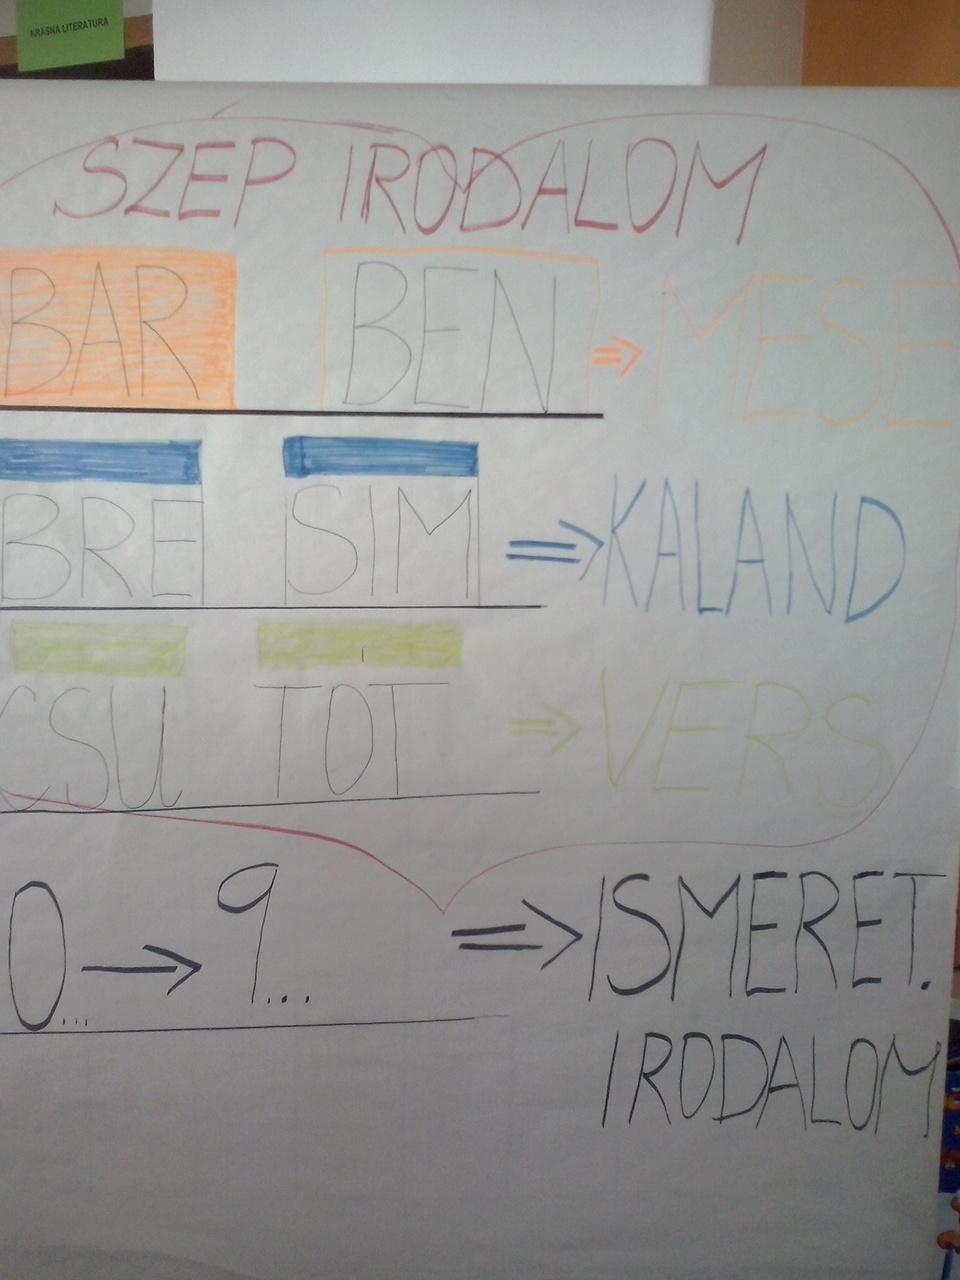 KRÁSNA LITERATÚRA
SZÉP IRODALOM
BAR BEN ⇒ MESE
BRE SIM ⇒ KALAND
CSU TÓT ⇒ VERS
0... → 9... ⇒ ISMERET.
IRODALOM